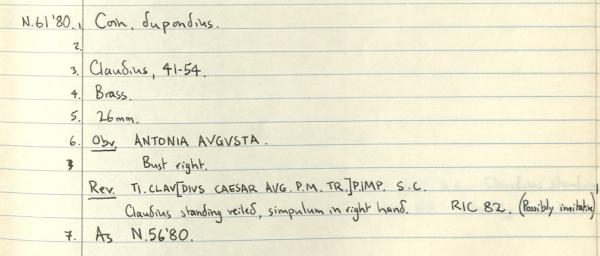 N.61'80. 1 Coin, dupondius.
2.
3. Claudius, 41-54.
4. Brass.
5. 26mm.
6. Obv. ANTONIA AVGVSTA.
Bust right.
Rev. TI.CLAV[DIVS CAESAR AVG. P.M. TR.]P.IMP. S.C.
Claudius standing veiled, simpulum in right hand. RIC 82. (Possibly imitation)
7. As N.56'80.